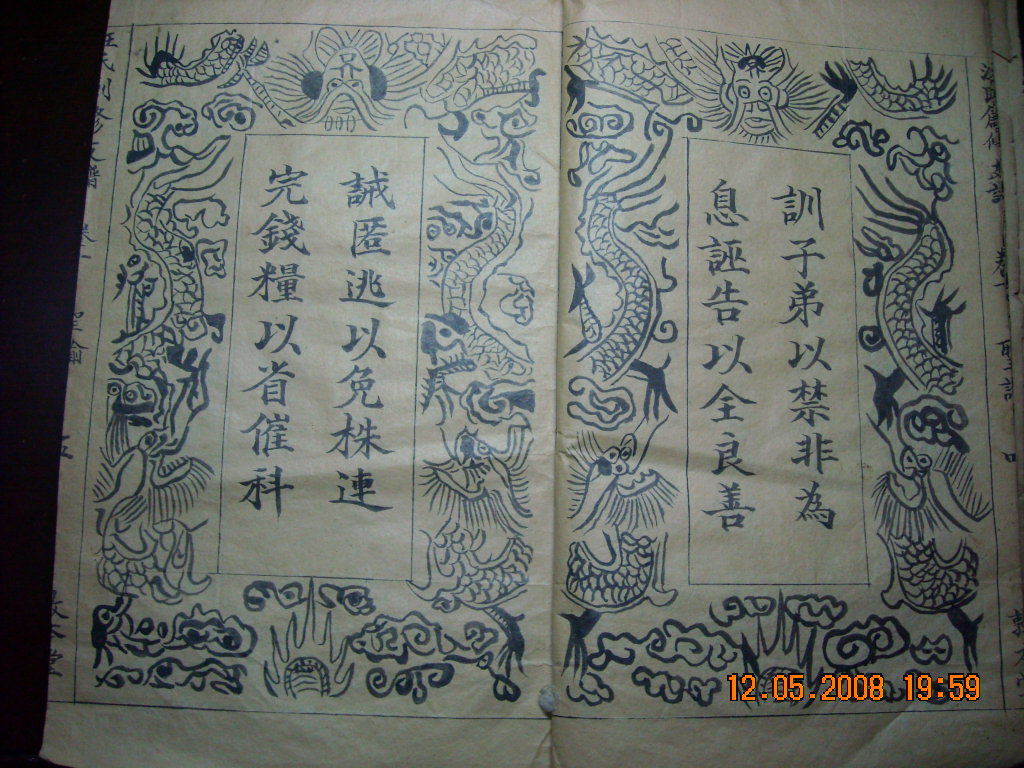 訓子弟以禁非為
息誣告以全良善
誡匿逃以免株連
完錢糧以省催科
聖諭
五
12.05.2008 19:59